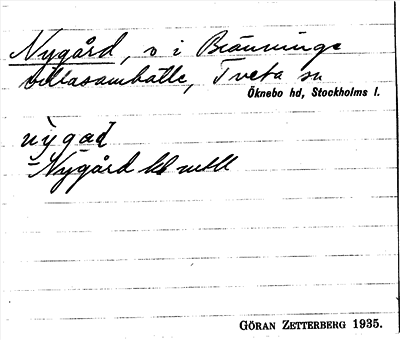 Nygård, v i Bränninge
villasamhälle, Tveta sn
Öknebo hd, Stockholms l.
Nygård
GÖRAN ZETTERBERG 1935.